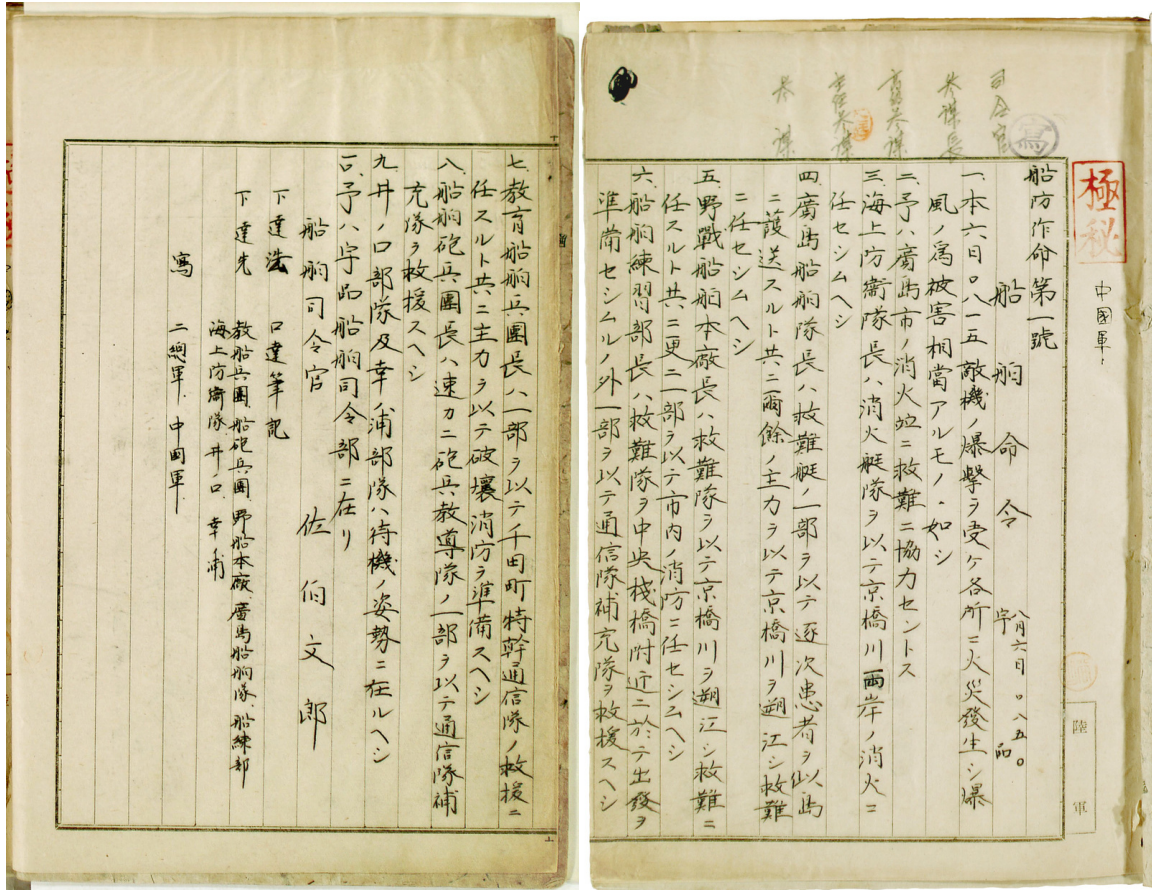 極秘
中國軍
陸軍
寫
司令官
参謀長
高級参謀
主任参謀
参謀
船防作命第一號
船舶命令
八月六日〇八五〇
宇品
一、本六日〇八一五敵機ノ爆撃ヲ受ケ各所ニ火災發生シ爆
風ノ爲被害相當アルモノヽ如シ
二、予ハ廣島市ノ消火竝ニ救難ニ協力セントス
三、海上防衞隊長ハ消火艇隊ヲ以テ京橋川兩岸ノ消火ニ
任セシムヘシ
四、廣島船舶隊長ハ救難艇ノ一部ヲ以テ逐次患者ヲ似島
ニ護送スルト共ニ爾餘ノ主力ヲ以テ京橋川ヲ遡江シ救難
ニ任セシムヘシ
五、野戰船舶本廠長ハ救難隊ヲ以テ京橋川ヲ遡江シ救難ニ
任スルト共ニ更ニ一部ヲ以テ市内ノ消防ニ任セシムヘシ
六、船舶練習部長ハ救難隊ヲ中央棧橋附近ニ於テ出發ヲ
準備セシムルノ外一部ヲ以テ通信隊補充隊ヲ救援スヘシ
七、教育船舶兵團長ハ一部ヲ以テ千田町特幹通信隊ノ救援ニ
任スルト共ニ主力ヲ以テ破壞消防ヲ準備スヘシ
八、船舶砲兵團長ハ速カニ砲兵教導隊ノ一部ヲ以テ通信隊補
充隊ヲ救援スヘシ
九、井ノ口部隊及幸ノ浦部隊ハ待機ノ姿勢ニ在ルヘシ
一〇、予ハ宇品船舶司令部ニ在リ
船舶司令官 佐伯文郎
下達法 口達筆記
下達先 教船兵團、船砲兵團、野船本廠、廣島船舶隊、船練部
海上防衛隊、井ノ口、幸ノ浦
寫 二總軍、中國軍